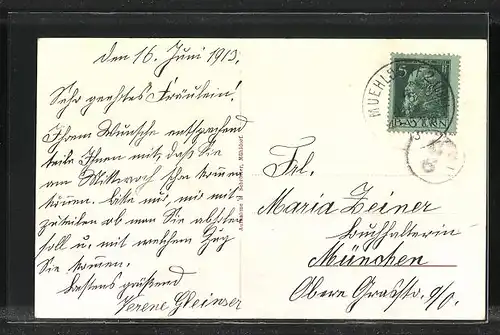 den 16. Juni 1913.
Sehr geehrtes Fräulein!
Ihrem Wunsche entsprechend
teile Ihnen mit, daß Sie
am Mittwoch schon kommen
können. Bitte mir mit-
zuteilen ob man Sie abholen
soll u. mit welchem Zug
Sie kommen.
Bestens grüßend
Verene
Mühldorf.
MUEHLD
5
BAYERN
Frl.
Maria Zeiner
Buchhalterin
München
Obere Grasstr.